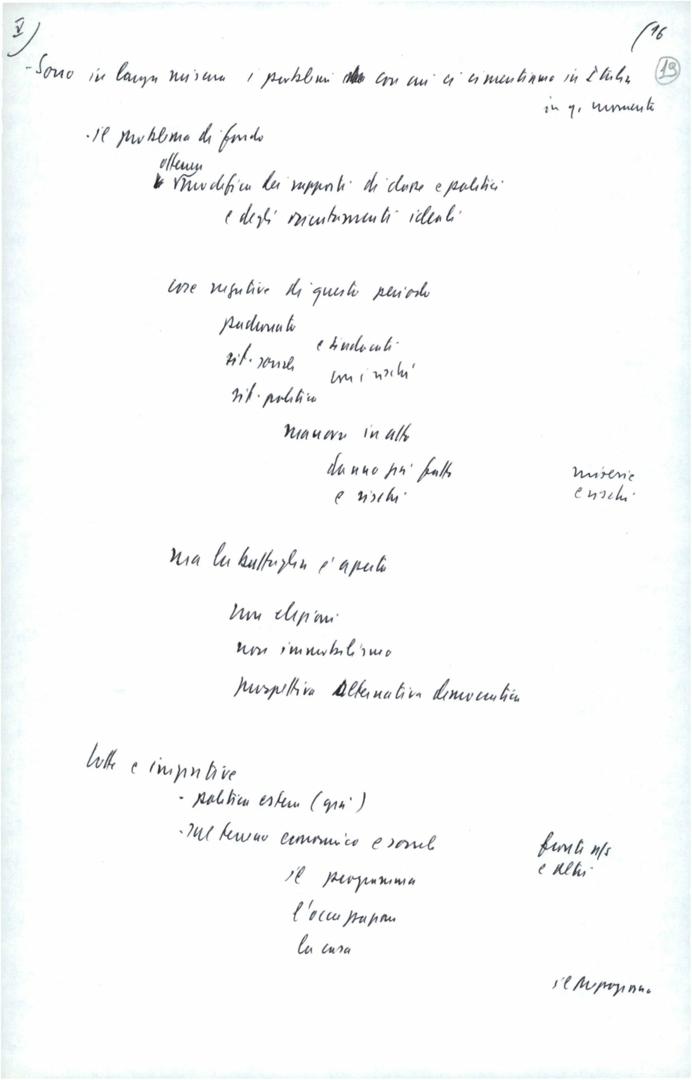 V)
(16
19
- Sono in larga misura i problemi con cui ci cimentiamo in Italia
in q. momento
- il problema di fondo
ottenere
modifica dei rapporti di classe e politici
e degli orientamenti ideali
cose negative di questo periodo
padronato
e sindacati
sit. sociale
con i rischi
sit. politica
manovre in alto
danno più fatto
e rischi
miserie
e rischi
ma la battaglia è aperta
non elezioni
non immobilismo
prospettiva alternativa democratica
lotte e iniziative
- politica estera (già)
- sul terreno economico e sociale
fronti n/s
e altri
il programma
l'occupazione
la casa